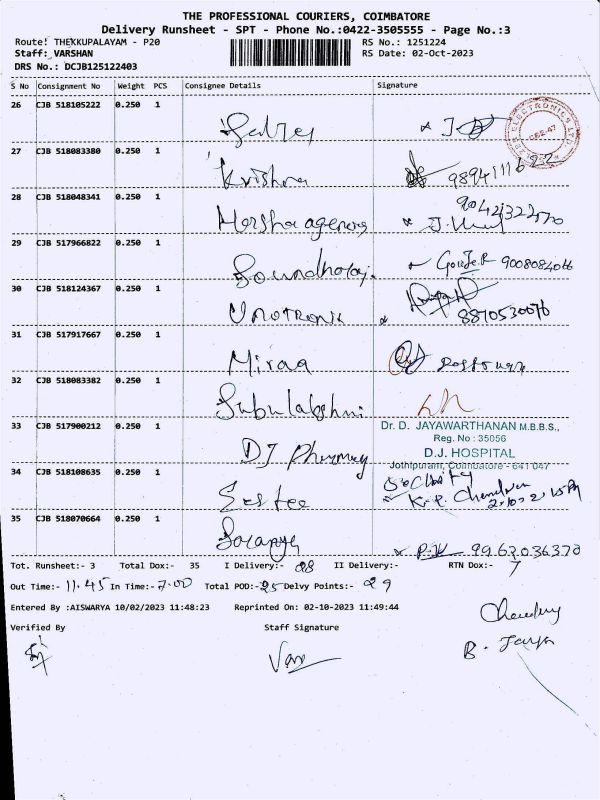 THE PROFESSIONAL COURIERS, COIMBATORE
Delivery Runsheet - SPT - Phone No.:0422-3505555 - Page No.:3
Route: THEKKUPALAYAM - P20 RS No.: 1251224
Staff: VARSHAN RS Date: 02-Oct-2023
DRS No.: DCJB125122403
S No Consignment No Weight PCS Consignee Details Signature
26 CJB 518105222 0.250 1
27 CJB 518083380 0.250 1
Krishna
28 CJB 518048341 0.250 1
Harsha agencies
29 CJB 517966822 0.250 1
9008084066
30 CJB 518124367 0.250 1
Unotronik 8870530076
31 CJB 517917667 0.250 1
Miraa
32 CJB 518083382 0.250 1
Subulakshmi
33 CJB 517900212 0.250 1 Dr. D. JAYAWARTHANAN M.B.B.S.,
Reg. No : 35056
DJ Pharmacy D.J. HOSPITAL
Jothipuram, Coimbatore - 641 047
34 CJB 518108635 0.250 1
35 CJB 518070664 0.250 1
Saranya 9963036370
Tot. Runsheet:- 3 Total Dox:- 35 I Delivery:- 28 II Delivery:- RTN Dox:- 7
Out Time:- 11.45 In Time:- 7.00 Total POD:- 25 Delvy Points:- 29
Entered By :AISWARYA 10/02/2023 11:48:23 Reprinted On: 02-10-2023 11:49:44
Verified By Staff Signature